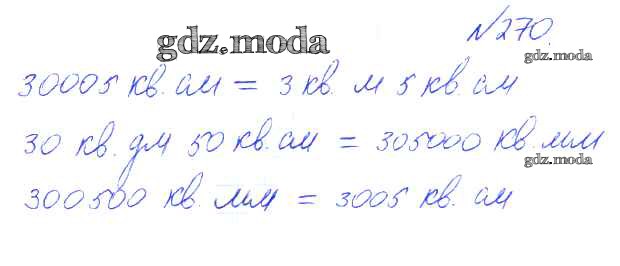 №270.
gdz.moda
gdz.moda
30005 кв. см = 3 кв. м 5 кв. см
30 кв. дм 50 кв. см = 305000 кв. мм
gdz.moda
300500 кв. мм = 3005 кв. см